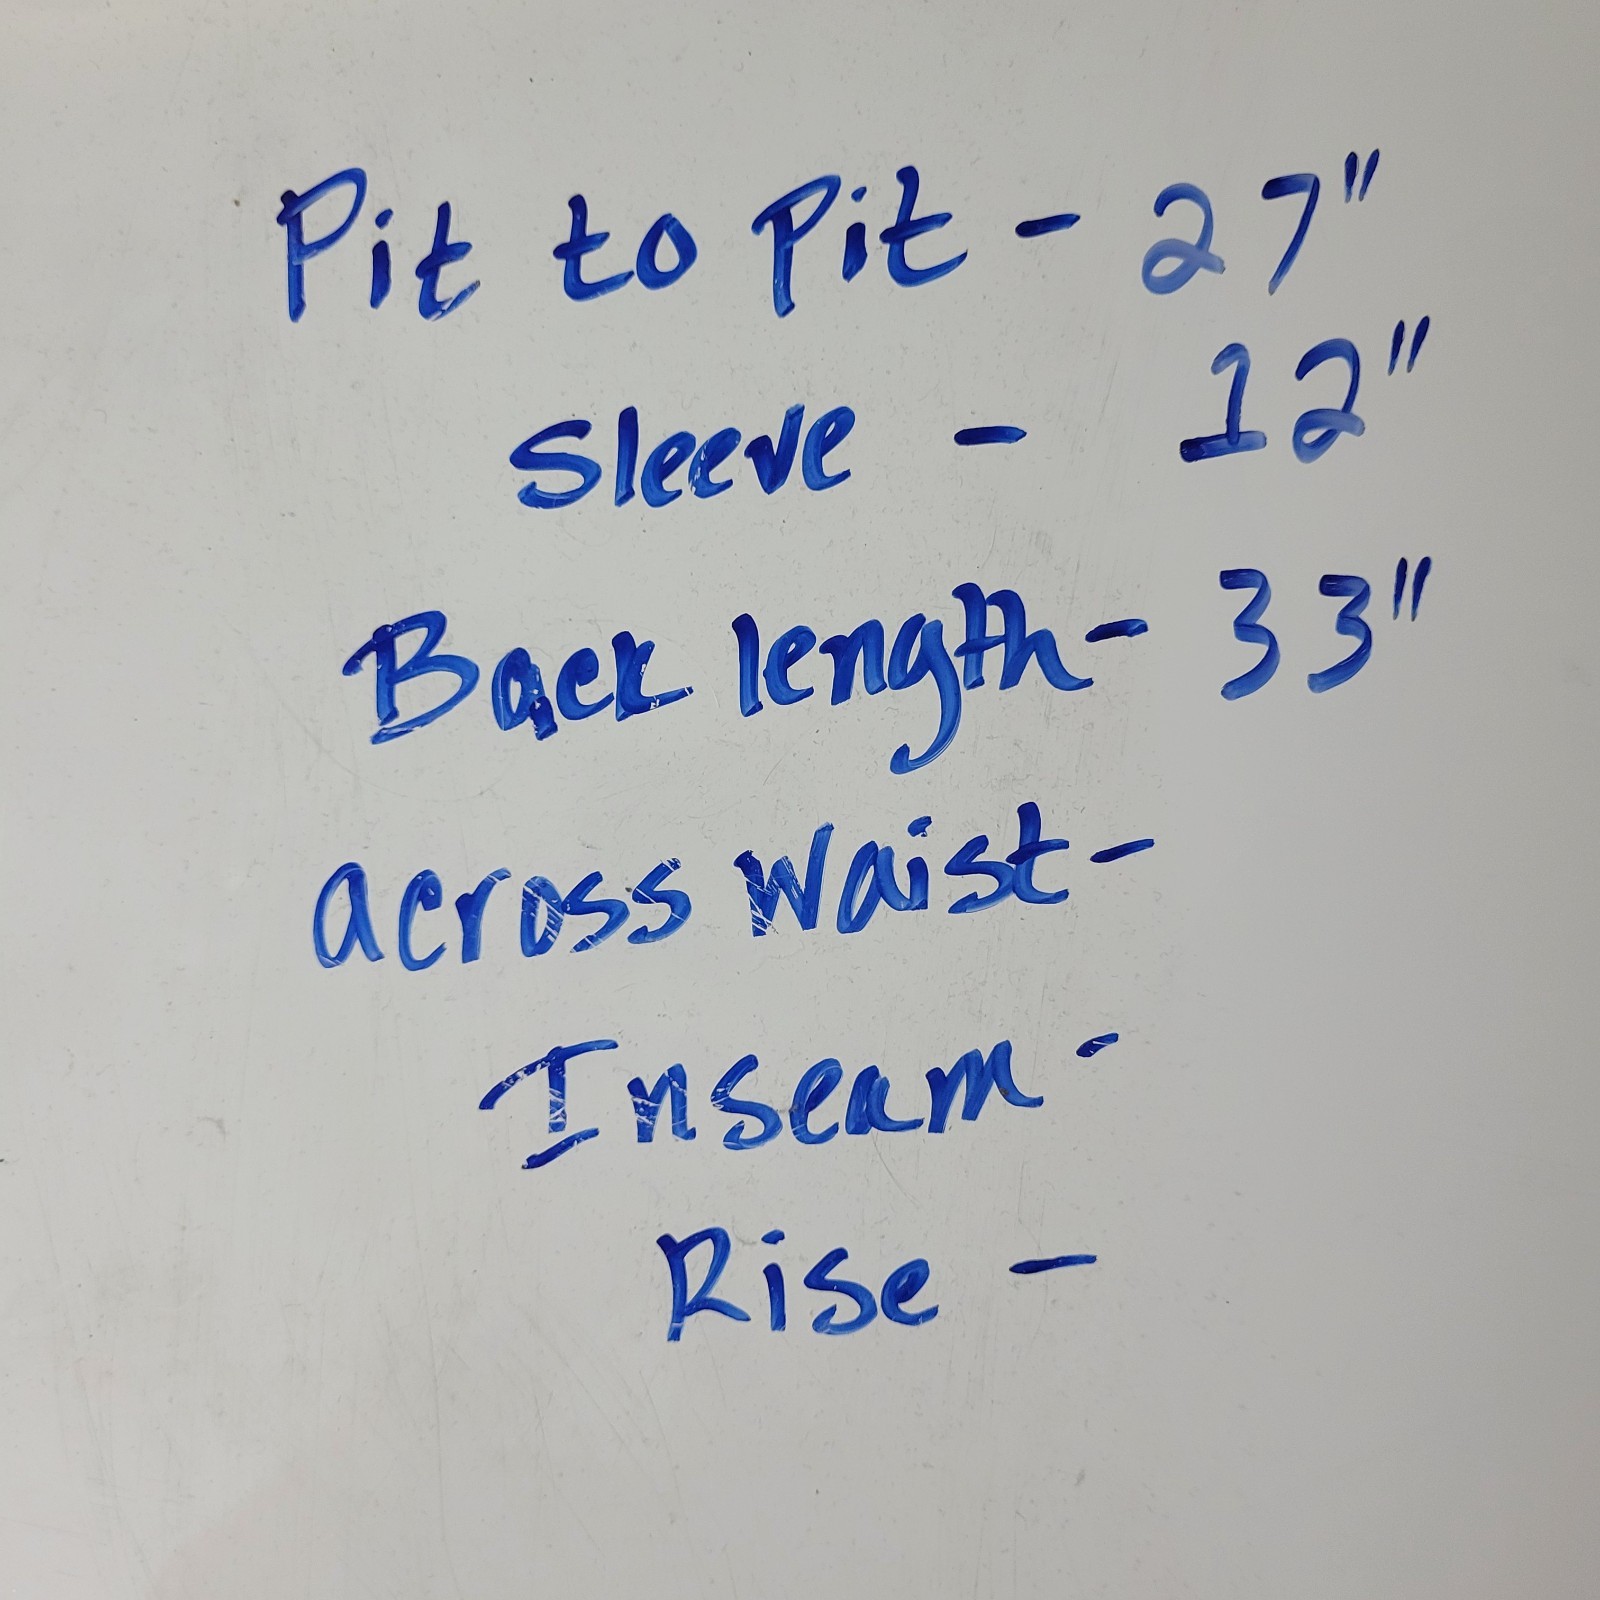 Pit to Pit - 27"
Sleeve - 12"
Back length - 33"
across Waist -
Inseam -
Rise -